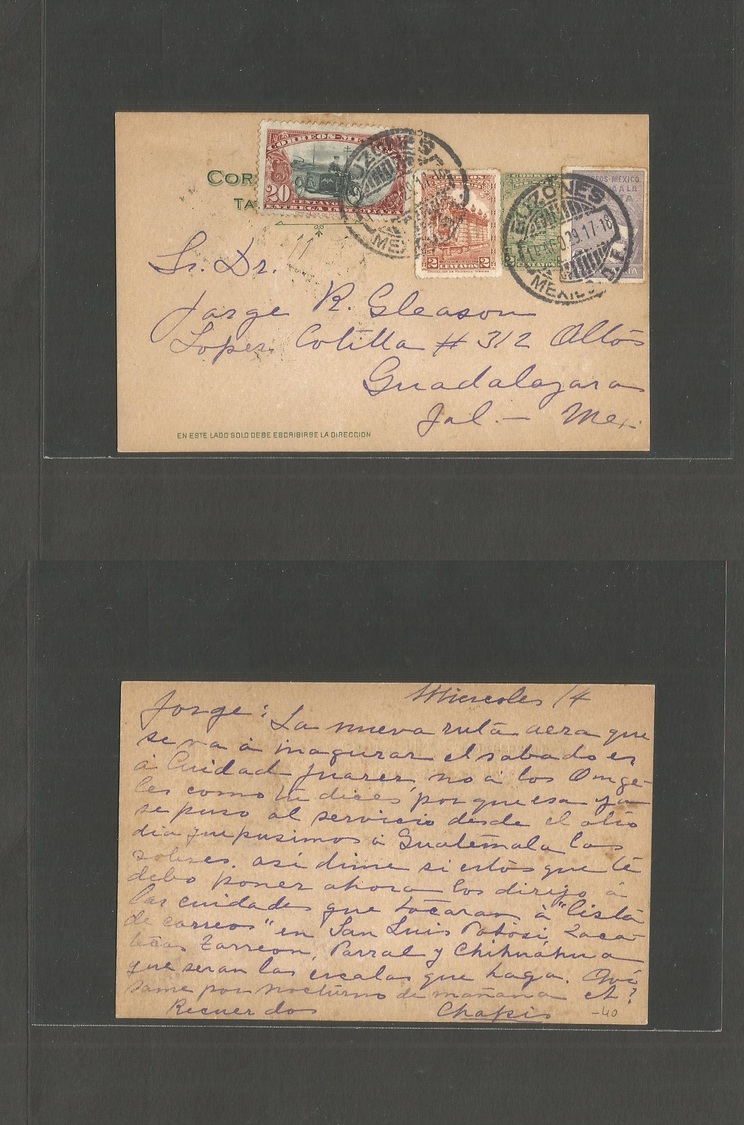 CORREOS MEXICO
20 CENTAVOS
ENTREGA INMEDIATA
COR
TA
BUZONES
MEXICO
2 CENTAVOS 2
2 CENTAVOS
BUZONES
29.17-18
MEXICO D.F.
11
Sr. Dr.
Jorge R. Gleason
Lopez Cotilla # 312 Altos
Guadalajara
Jal. - Mex.
EN ESTE LADO SOLO DEBE ESCRIBIRSE LA DIRECCION
Miercoles /4
Jorge: La nueva ruta aera que
se va á inagurar el sabado es
á Cuidad Juarez, no á los Ange-
les como tu dices, porque esa ya
se puso al servicio desde el otro
dia que pusimos á Guatemala los
sobres. así dime si estos que te
debo poner ahora los dirijo á
las cuidades que tocaran á "lista
de correos" en San Luis Potosi, Zaca-
tecas Torreon, Parral y Chihuahua
que seran las escalas que haga. Aví
same por nocturno de mañana eh?
Recuerdos Chapis
-40